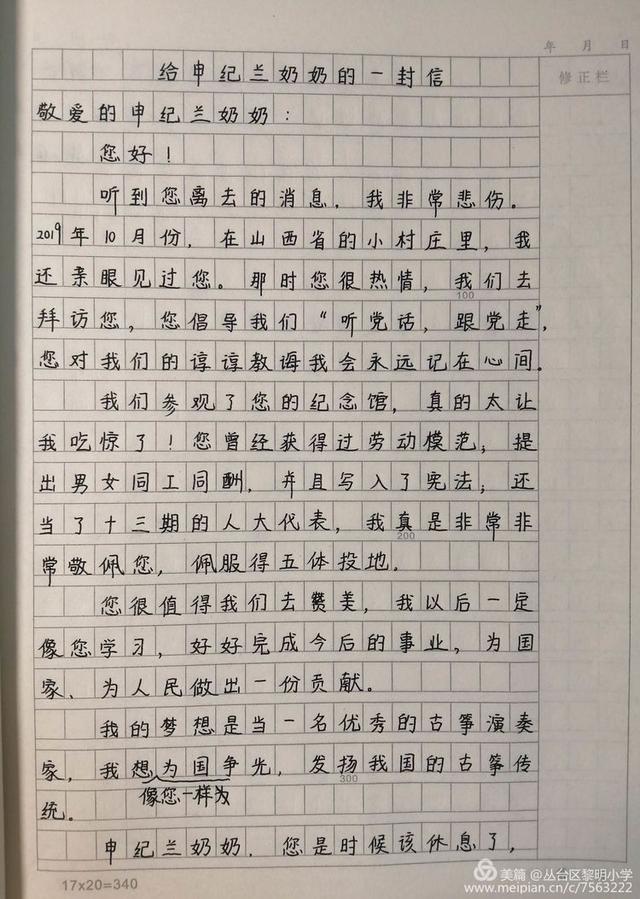 年 月 日
修正栏
给申纪兰奶奶的一封信
敬爱的申纪兰奶奶：
您好！
听到您离去的消息，我非常悲伤。
2019年10月份，在山西省的小村庄里，我
还亲眼见过您。那时您很热情，我们去
100
拜访您，您倡导我们“听党话，跟党走”，
您对我们的谆谆教诲我会永远记在心间。
我们参观了您的纪念馆，真的太让
我吃惊了！您曾经获得过劳动模范；提
出男女同工同酬，并且写入了宪法；还
当了十三期的人大代表，我真是非常非
200
常敬佩您，佩服得五体投地。
您很值得我们去赞美，我以后一定
像您学习，好好完成今后的事业，为国
家、为人民做出一份贡献。
我的梦想是当一名优秀的古筝演奏
家，我想为国争光，发扬我国的古筝传
300
像您一样为
统。
申纪兰奶奶，您是时候该休息了，
17x20=340
美篇 @丛台区黎明小学
www.meipian.cn/c/7563222